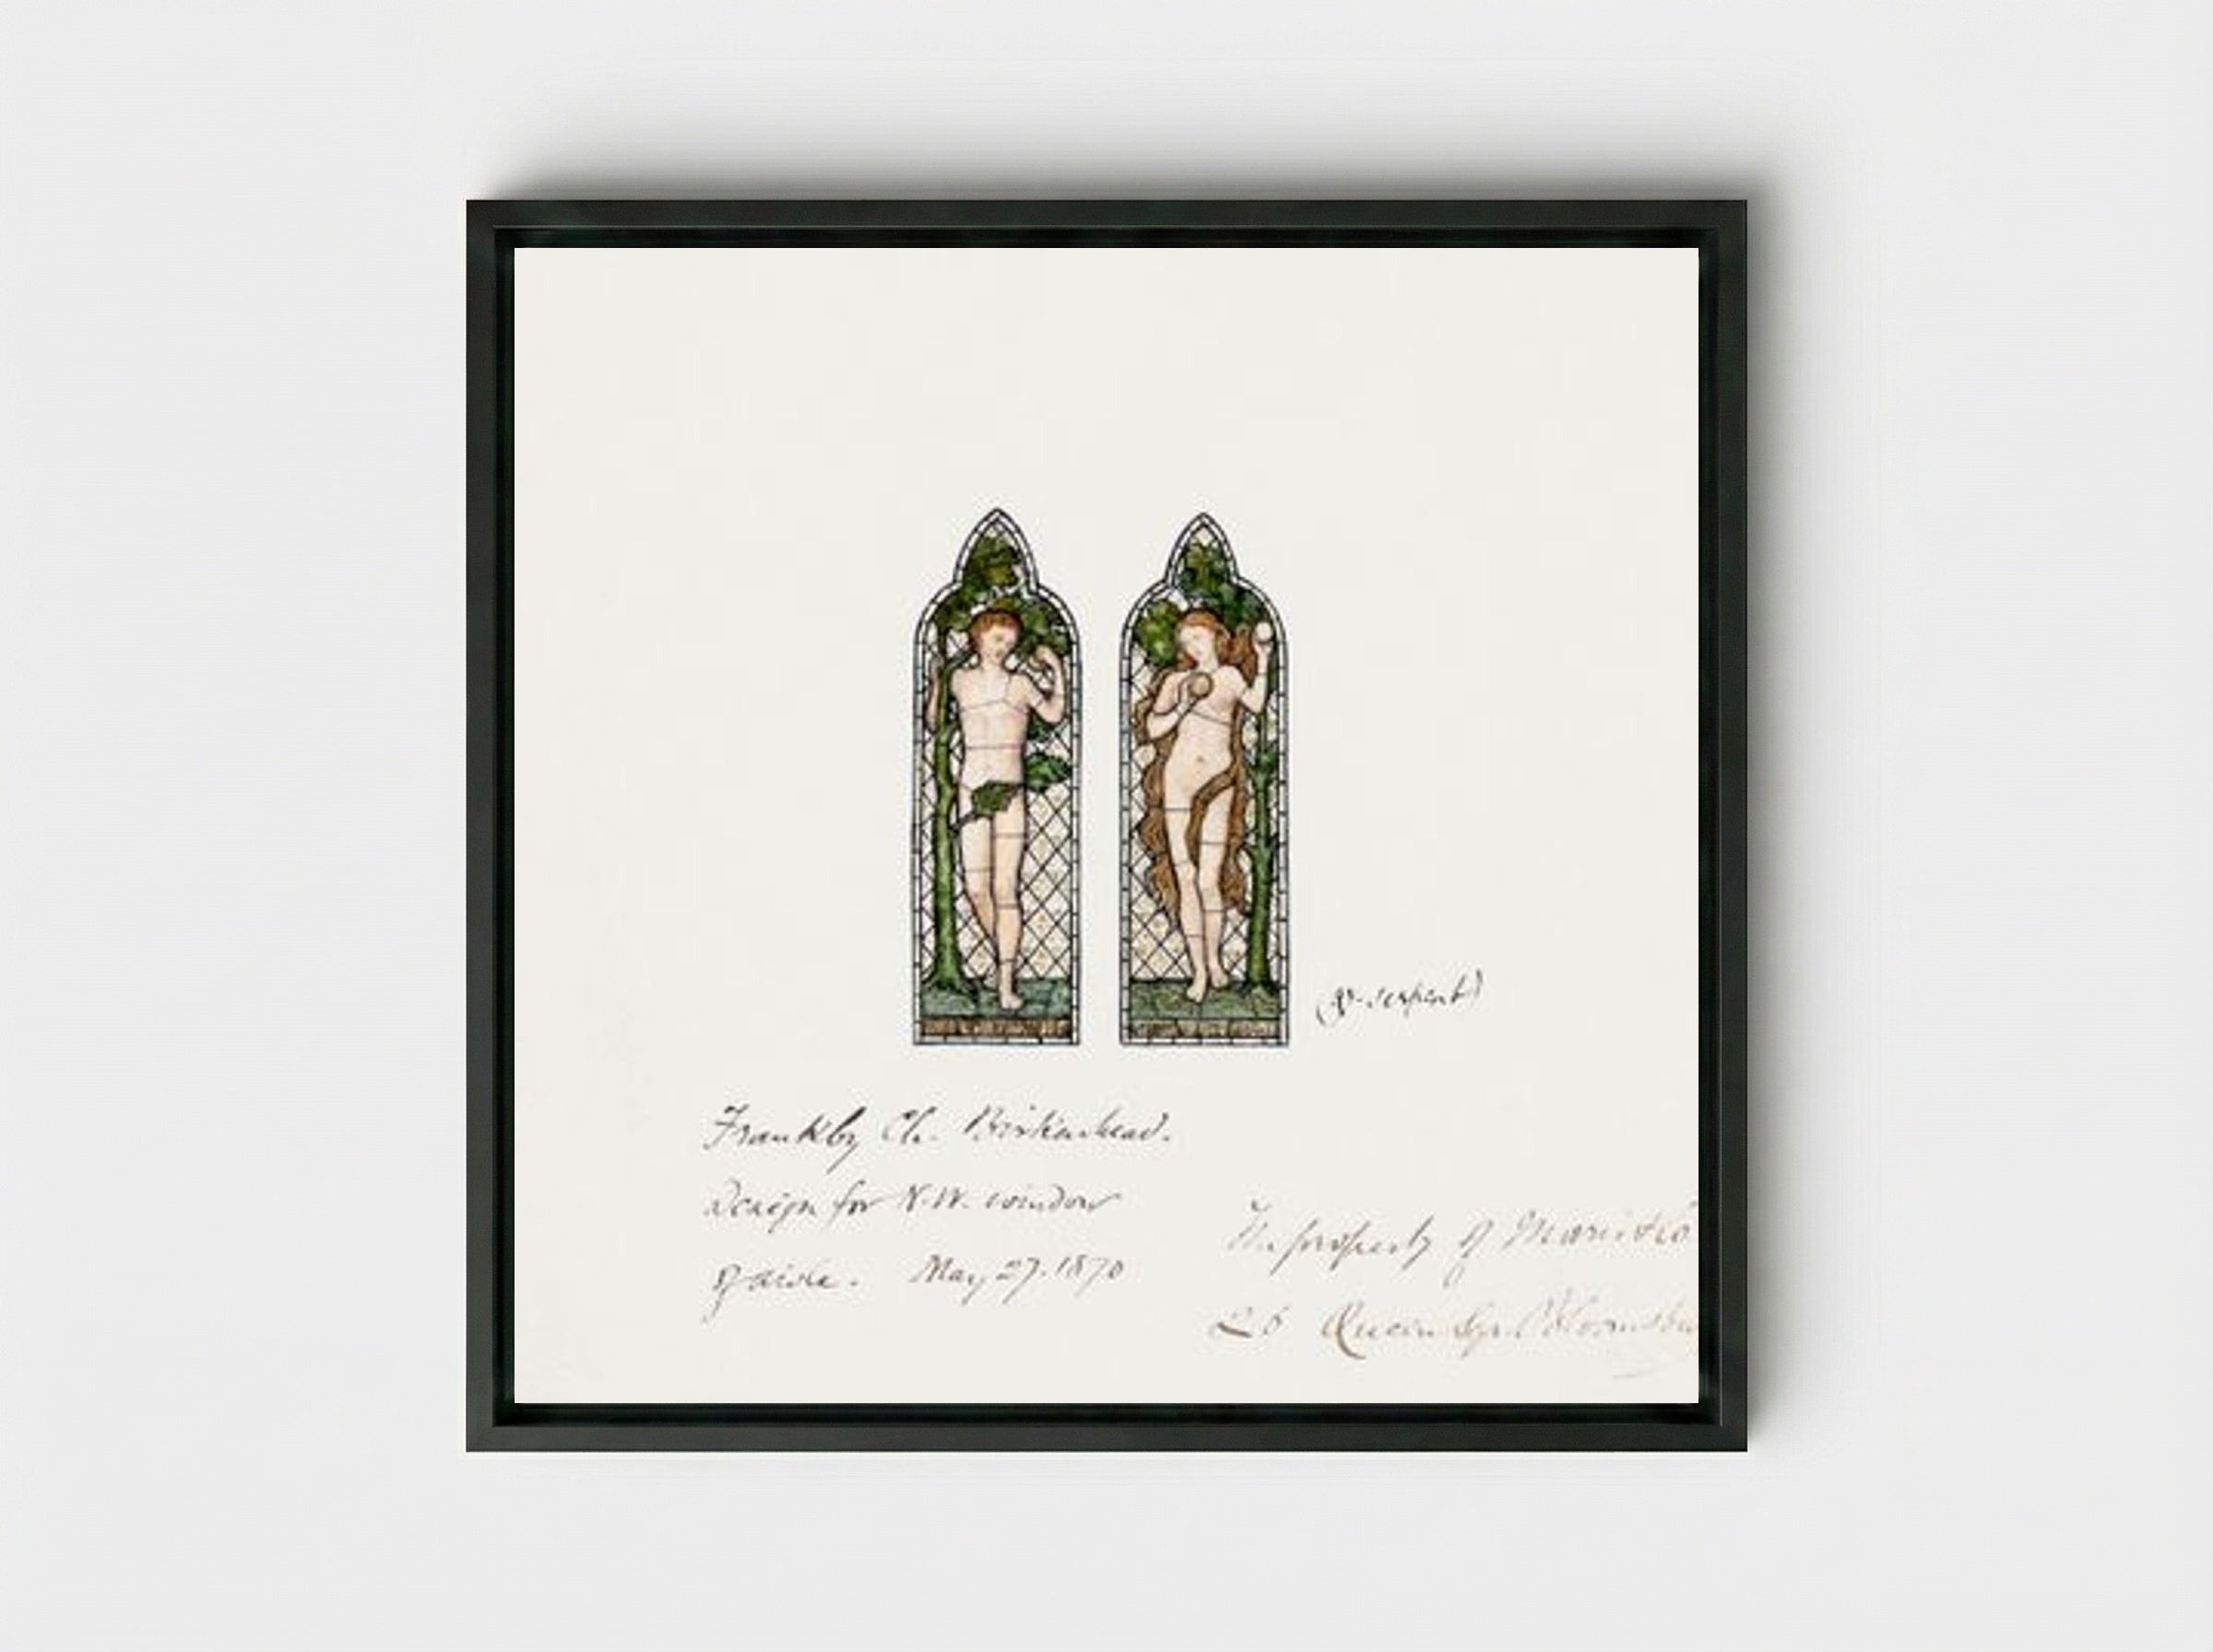 (& serpent)
Frankby Ch. Birkenhead.
Design for N.W. window
of aisle. May 27. 1870
The property of Morris & Co
26 Queen Sq. Bloomsbu